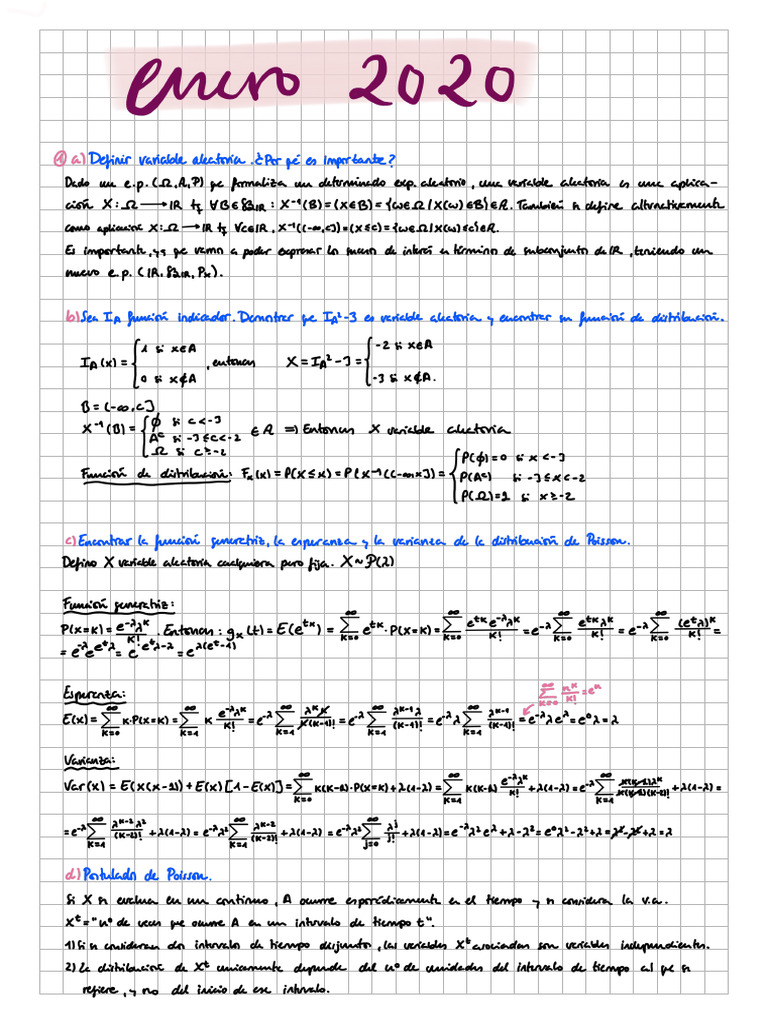 enero 2020
① a) Definir variable aleatoria. ¿Por qé es importante?
Dado un e.p. (Ω, A, P) qe formaliza un determinado exp. aleatorio, una variable aleatoria es una aplica-
ción X: Ω → IR tq ∀B ∈ β_IR : X⁻¹(B) = (X∈B) = {ω∈Ω / X(ω)∈B} ∈ A. También se define alternativamente
como aplicación X: Ω → IR tq ∀c∈IR, X⁻¹((-∞,c]) = (X≤c) = {ω∈Ω / X(ω)≤c} ∈ A.
Es importante, ya qe vamos a poder expresar los sucesos de interés en términos de subconjuntos de IR, teniendo un
nuevo e.p. (IR, β_IR, Pₓ).
b) Sea I_A función indicador. Demostrar qe I_A²-3 es variable aleatoria y encontrar su función de distribución.
I_A(x) = { 1 si x∈A ; 0 si x∉A , entonces X = I_A²-3 = { -2 si x∈A ; -3 si x∉A.
B = (-∞, c]
X⁻¹(B) = { ∅ si c<-3 ; Aᶜ si -3≤c<-2 ; Ω si c≥-2 ∈ A => Entonces X variable aleatoria
Función de distribución: Fₓ(x) = P(X≤x) = P(X⁻¹((-∞,x])) = { P(∅)=0 si x<-3 ; P(Aᶜ) si -3≤x<-2 ; P(Ω)=1 si x≥-2
c) Encontrar la función generatriz, la esperanza y la varianza de la distribución de Poisson.
Defino X variable aleatoria cualquiera pero fija. X ~ P(λ)
Función generatriz:
P(X=K) = e^-λ λ^K / K! . Entonces: gₓ(t) = E(e^tx) = ∑_{K=0}^∞ e^tK · P(X=K) = ∑_{K=0}^∞ e^tK e^-λ λ^K / K! = e^-λ ∑_{K=0}^∞ e^tK λ^K / K! = e^-λ ∑_{K=0}^∞ (e^t λ)^K / K! =
= e^-λ e^{e^t λ} = e^{e^t λ-λ} = e^{λ(e^t-1)}
Esperanza:
∑_{K=0}^∞ n^K / K! = e^n
E(X) = ∑_{K=0}^∞ K·P(X=K) = ∑_{K=1}^∞ K e^-λ λ^K / K! = e^-λ ∑_{K=1}^∞ λ^K K / K(K-1)! = e^-λ ∑_{K=1}^∞ λ^{K-1} λ / (K-1)! = e^-λ λ ∑_{K=1}^∞ λ^{K-1} / (K-1)! = e^-λ λ e^λ = e^0 λ = λ
Varianza:
Var(X) = E(X(X-1)) + E(X)[1-E(X)] = ∑_{K=0}^∞ K(K-1)·P(X=K) + λ(1-λ) = ∑_{K=1}^∞ K(K-1) e^-λ λ^K / K! + λ(1-λ) = e^-λ ∑_{K=1}^∞ K(K-1) λ^K / K(K-1)(K-2)! + λ(1-λ) =
= e^-λ ∑_{K=1}^∞ λ^{K-2} λ² / (K-2)! + λ(1-λ) = e^-λ λ² ∑_{K=1}^∞ λ^{K-2} / (K-2)! + λ(1-λ) = e^-λ λ² ∑_{j=0}^∞ λ^j / j! + λ(1-λ) = e^-λ λ² e^λ + λ-λ² = e^0 λ²-λ²+λ = λ²-λ²+λ = λ
d) Postulados de Poisson.
Si X se evalua en un continuo, A ocurre esporádicamente en el tiempo y se considera la v.a.
X^t = "nº de veces que ocurre A en un intervalo de tiempo t".
1) Si se consideran dos intervalos de tiempo disjuntos, las variables X^t asociadas son variables independientes.
2) La distribución de X^t unicamente depende del nº de unidades del intervalo de tiempo al qe se
refiere, y no del inicio de ese intervalo.